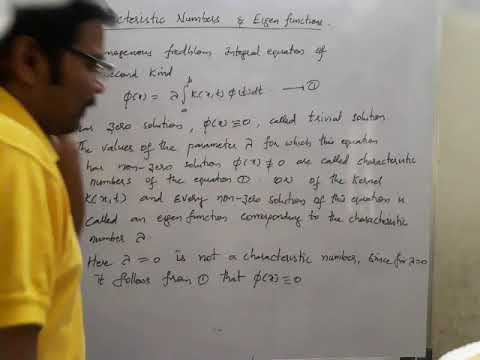 cteristic Numbers & Eigen functions.
mogenous fredholm integral equation of
econd Kind
φ(x) = λ ∫ₐᵇ K(x,t) φ(t)dt ⟶ ①
has zero solutions, φ(x) ≡ 0, called trivial solution.
The values of the parameter λ for which this equation
has non-zero solution φ(x) ≠ 0 are called characteristic
numbers of the equation ① or of the Kernel
K(x,t) and every non-zero solution of this equation is
called an eigen function corresponding to the characteristic
number λ.
Here λ = 0 is not a characteristic number, since for λ=0
it follows from ① that φ(x) ≡ 0